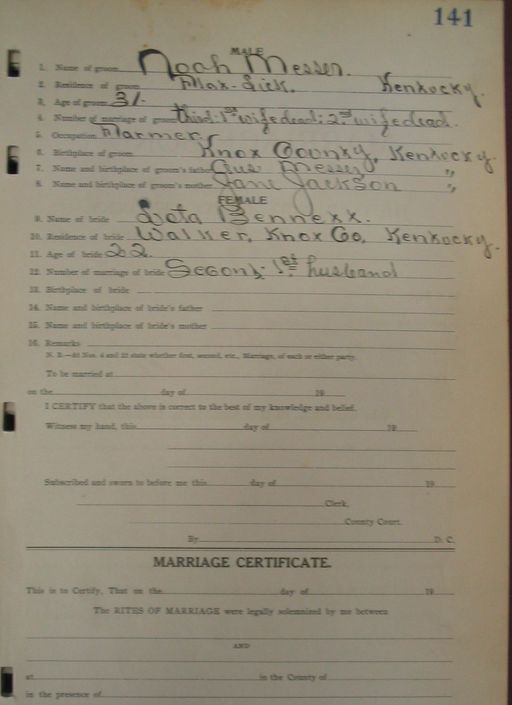 141
MALE
1. Name of groom Noah Messer.
2. Residence of groom Flax-Lick. Kentucky.
3. Age of groom 31.
4. Number of marriage of groom third: 1st wife dead: 2nd wife dead.
5. Occupation Farmer
6. Birthplace of groom Knox County, Kentucky.
7. Name and birthplace of groom's father Gus Messer "
8. Name and birthplace of groom's mother Jane Jackson "
FEMALE
9. Name of bride Bennett.
10. Residence of bride Walker, Knox Co, Kentucky.
11. Age of bride 22.
12. Number of marriage of bride Second: 1st husband
13. Birthplace of bride
14. Name and birthplace of bride's father
15. Name and birthplace of bride's mother
16. Remarks
N. B.—At Nos. 4 and 12 state whether first, second, etc., Marriage, of each or either party.
To be married at
on the day of 19
I CERTIFY that the above is correct to the best of my knowledge and belief.
Witness my hand, this day of 19
Subscribed and sworn to before me this day of 19
Clerk,
County Court.
By D. C.
MARRIAGE CERTIFICATE.
This is to Certify, That on the day of 19
The RITES OF MARRIAGE were legally solemnized by me between
AND
at in the County of
in the presence of